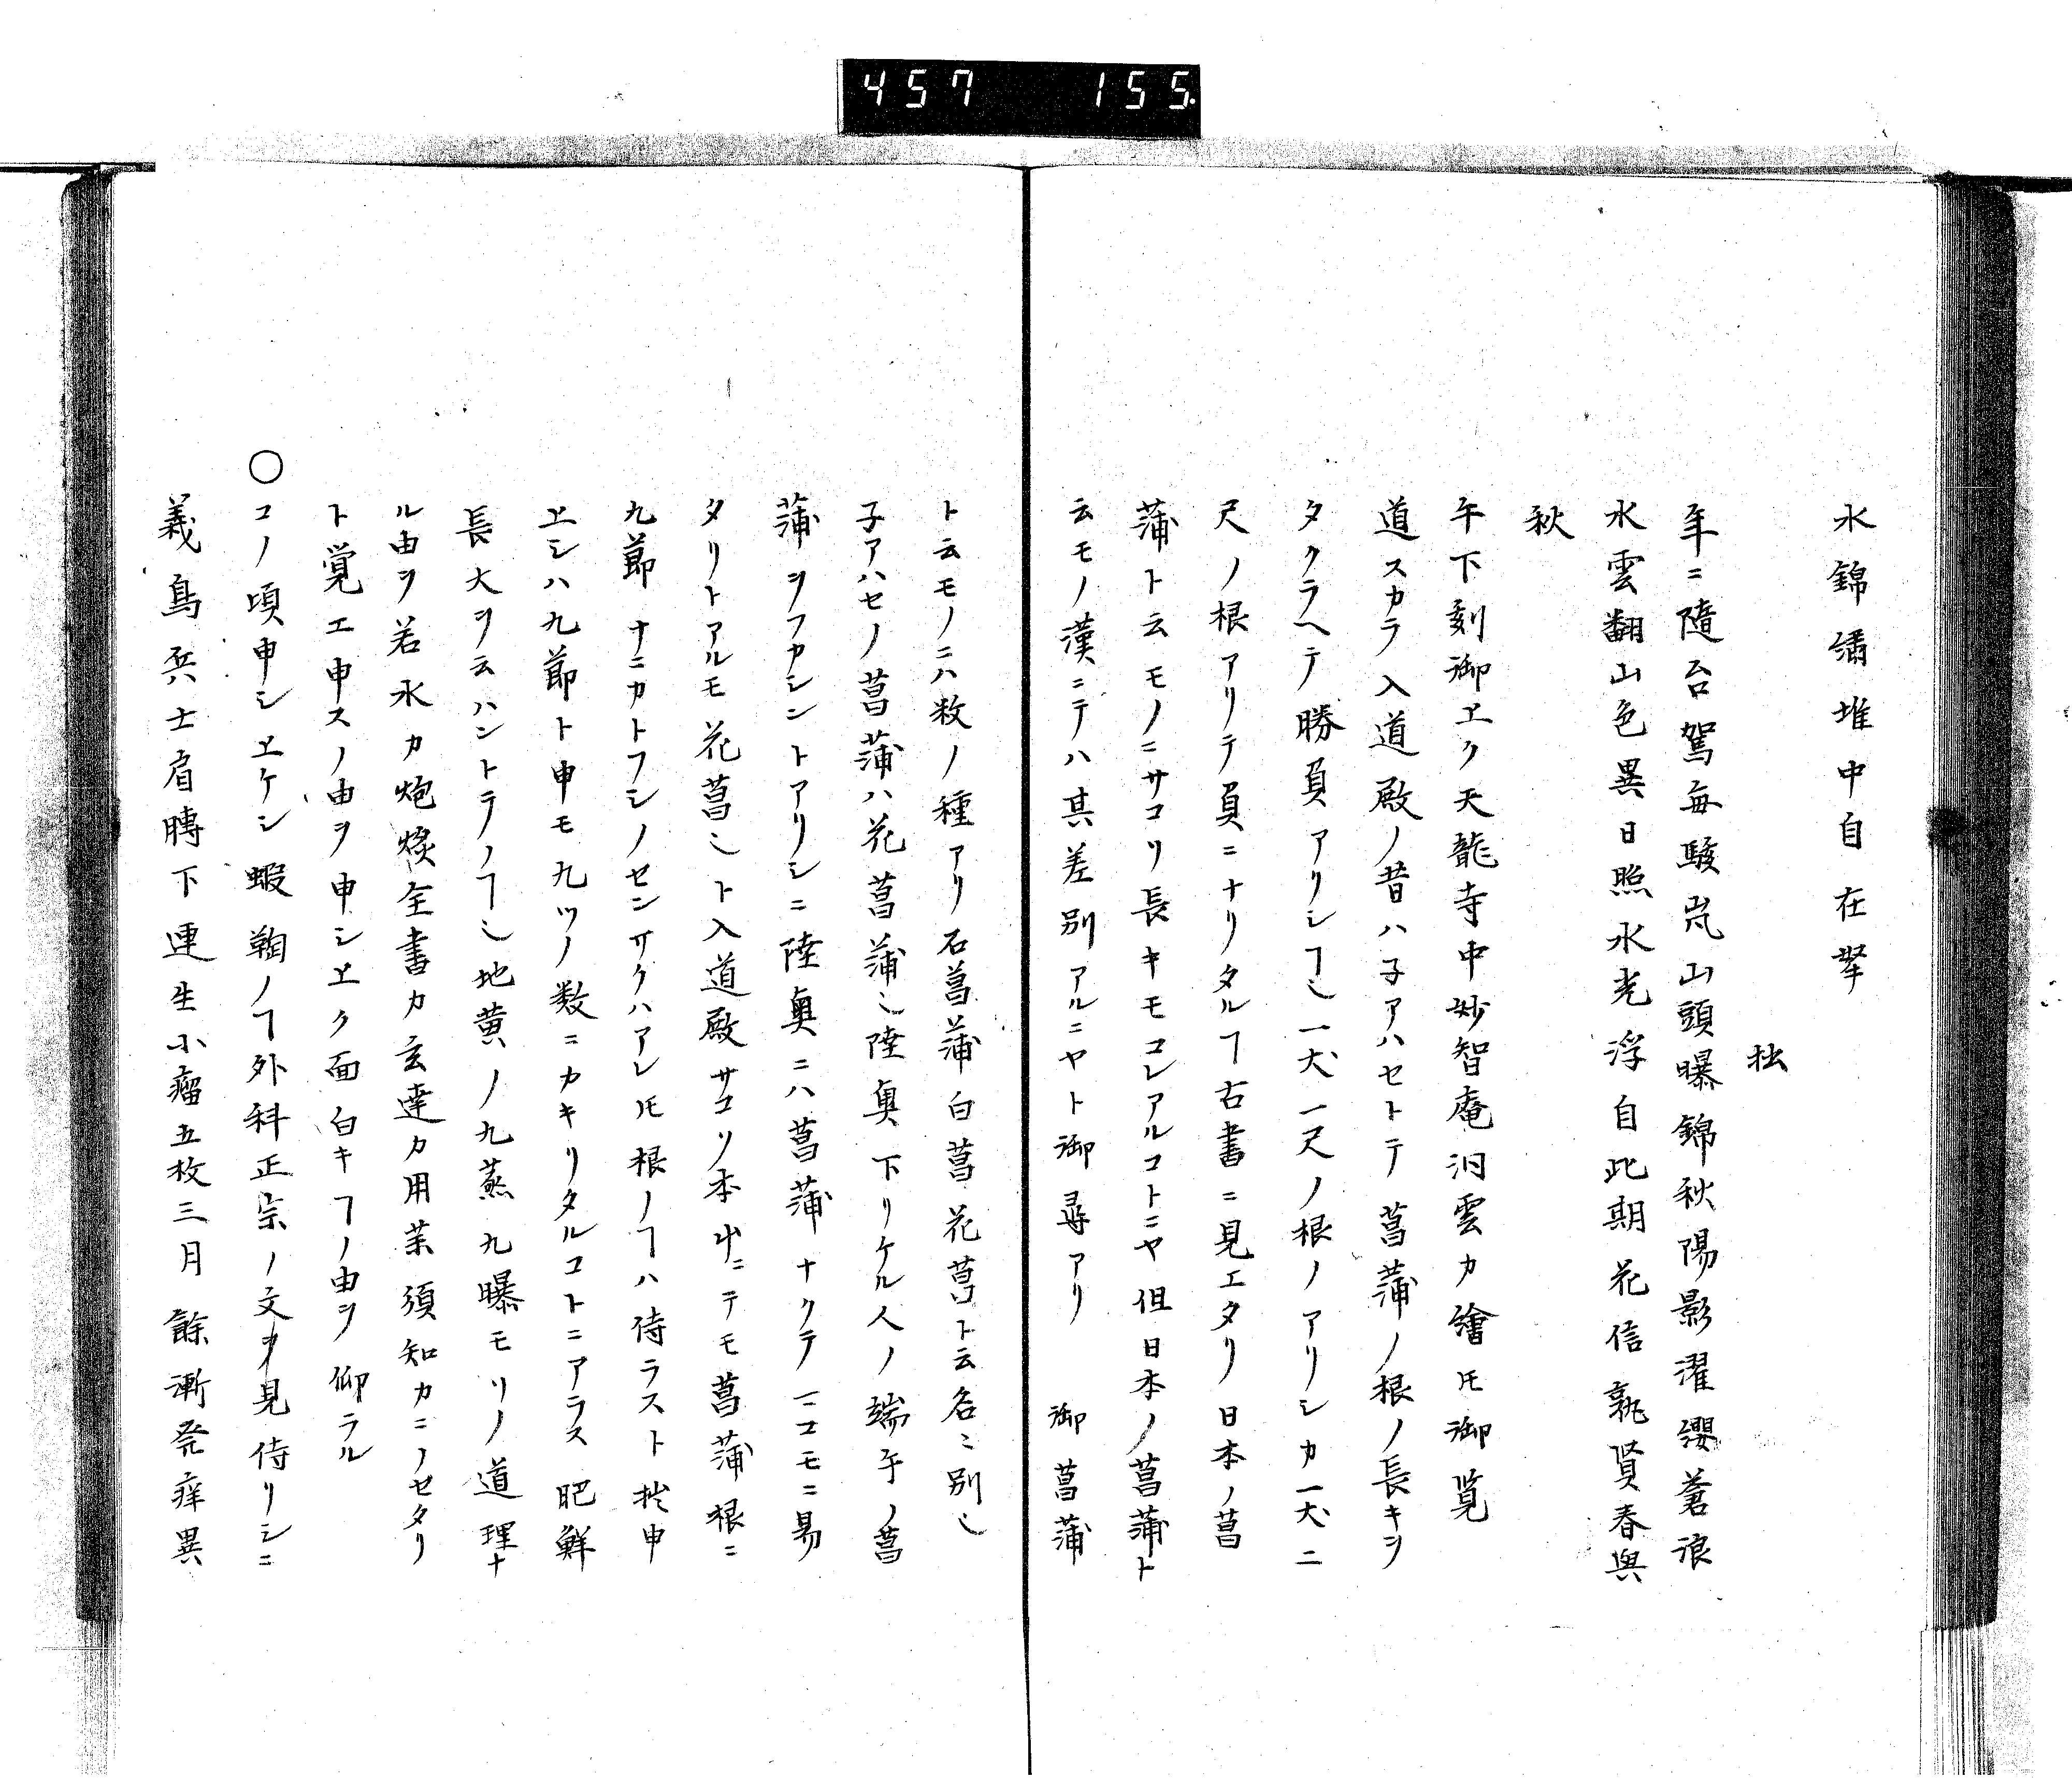 457 155
水錦繡堆中自在挙
拙
年ニ隨台駕毎騣嵐山頭曝錦秋陽影濯纓蒼浪
水雲翻山色異日照水光浮自此期花信孰賢春與
秋
午下刻御ヱク天龍寺中妙智庵泂雲カ繪ヒ御覧
道スカラ入道殿ノ昔ハ子アハセトテ菖蒲ノ根ノ長キヲ
タクラヘテ勝負アリシヿ乄一丈一尺ノ根ノアリシカ一丈二
尺ノ根アリテ負ニナリタルヿ古書ニ見エタリ日本ノ菖
蒲ト云モノニサコソ長キモコレアルコトニヤ但日本ノ菖蒲ト
云モノ漢ニテハ其差別アルニヤト御尋アリ 御菖蒲
ト云モノニハ数ノ種アリ石菖蒲白菖花菖ト云各ミ別乄
子アハセノ菖蒲ハ花菖蒲乄陸奥下リケル人ノ端午ノ菖
蒲ヲフカシントアリシニ陸奥ニハ菖蒲ナクテ一コモニ易
タリトアルモ花菖乄ト入道殿サコソ本ヰニテモ菖蒲根ニ
九節ナニカトフシノセンサクハアレ𪜈根ノヿハ侍ラスト拙申
ヱシハ九節ト申モ九ツノ数ニカキリタルコトニアラス肥鮮
長大ヲ云ハントテノヿ乄地黄ノ九蒸九曝モソノ道理ナ
ル由ヲ若水カ炮燬全書カ玄達カ用茱須知カニノセタリ
ト覚エ申スノ由ヲ申シヱク面白キヿノ由ヲ仰ラル
〇コノ頃申シヱケシ蝦鞠ノヿ外科正宗ノ文ヲ見侍リシニ
義烏兵士肩膊下連生小瘤五枚三月餘漸発痒異